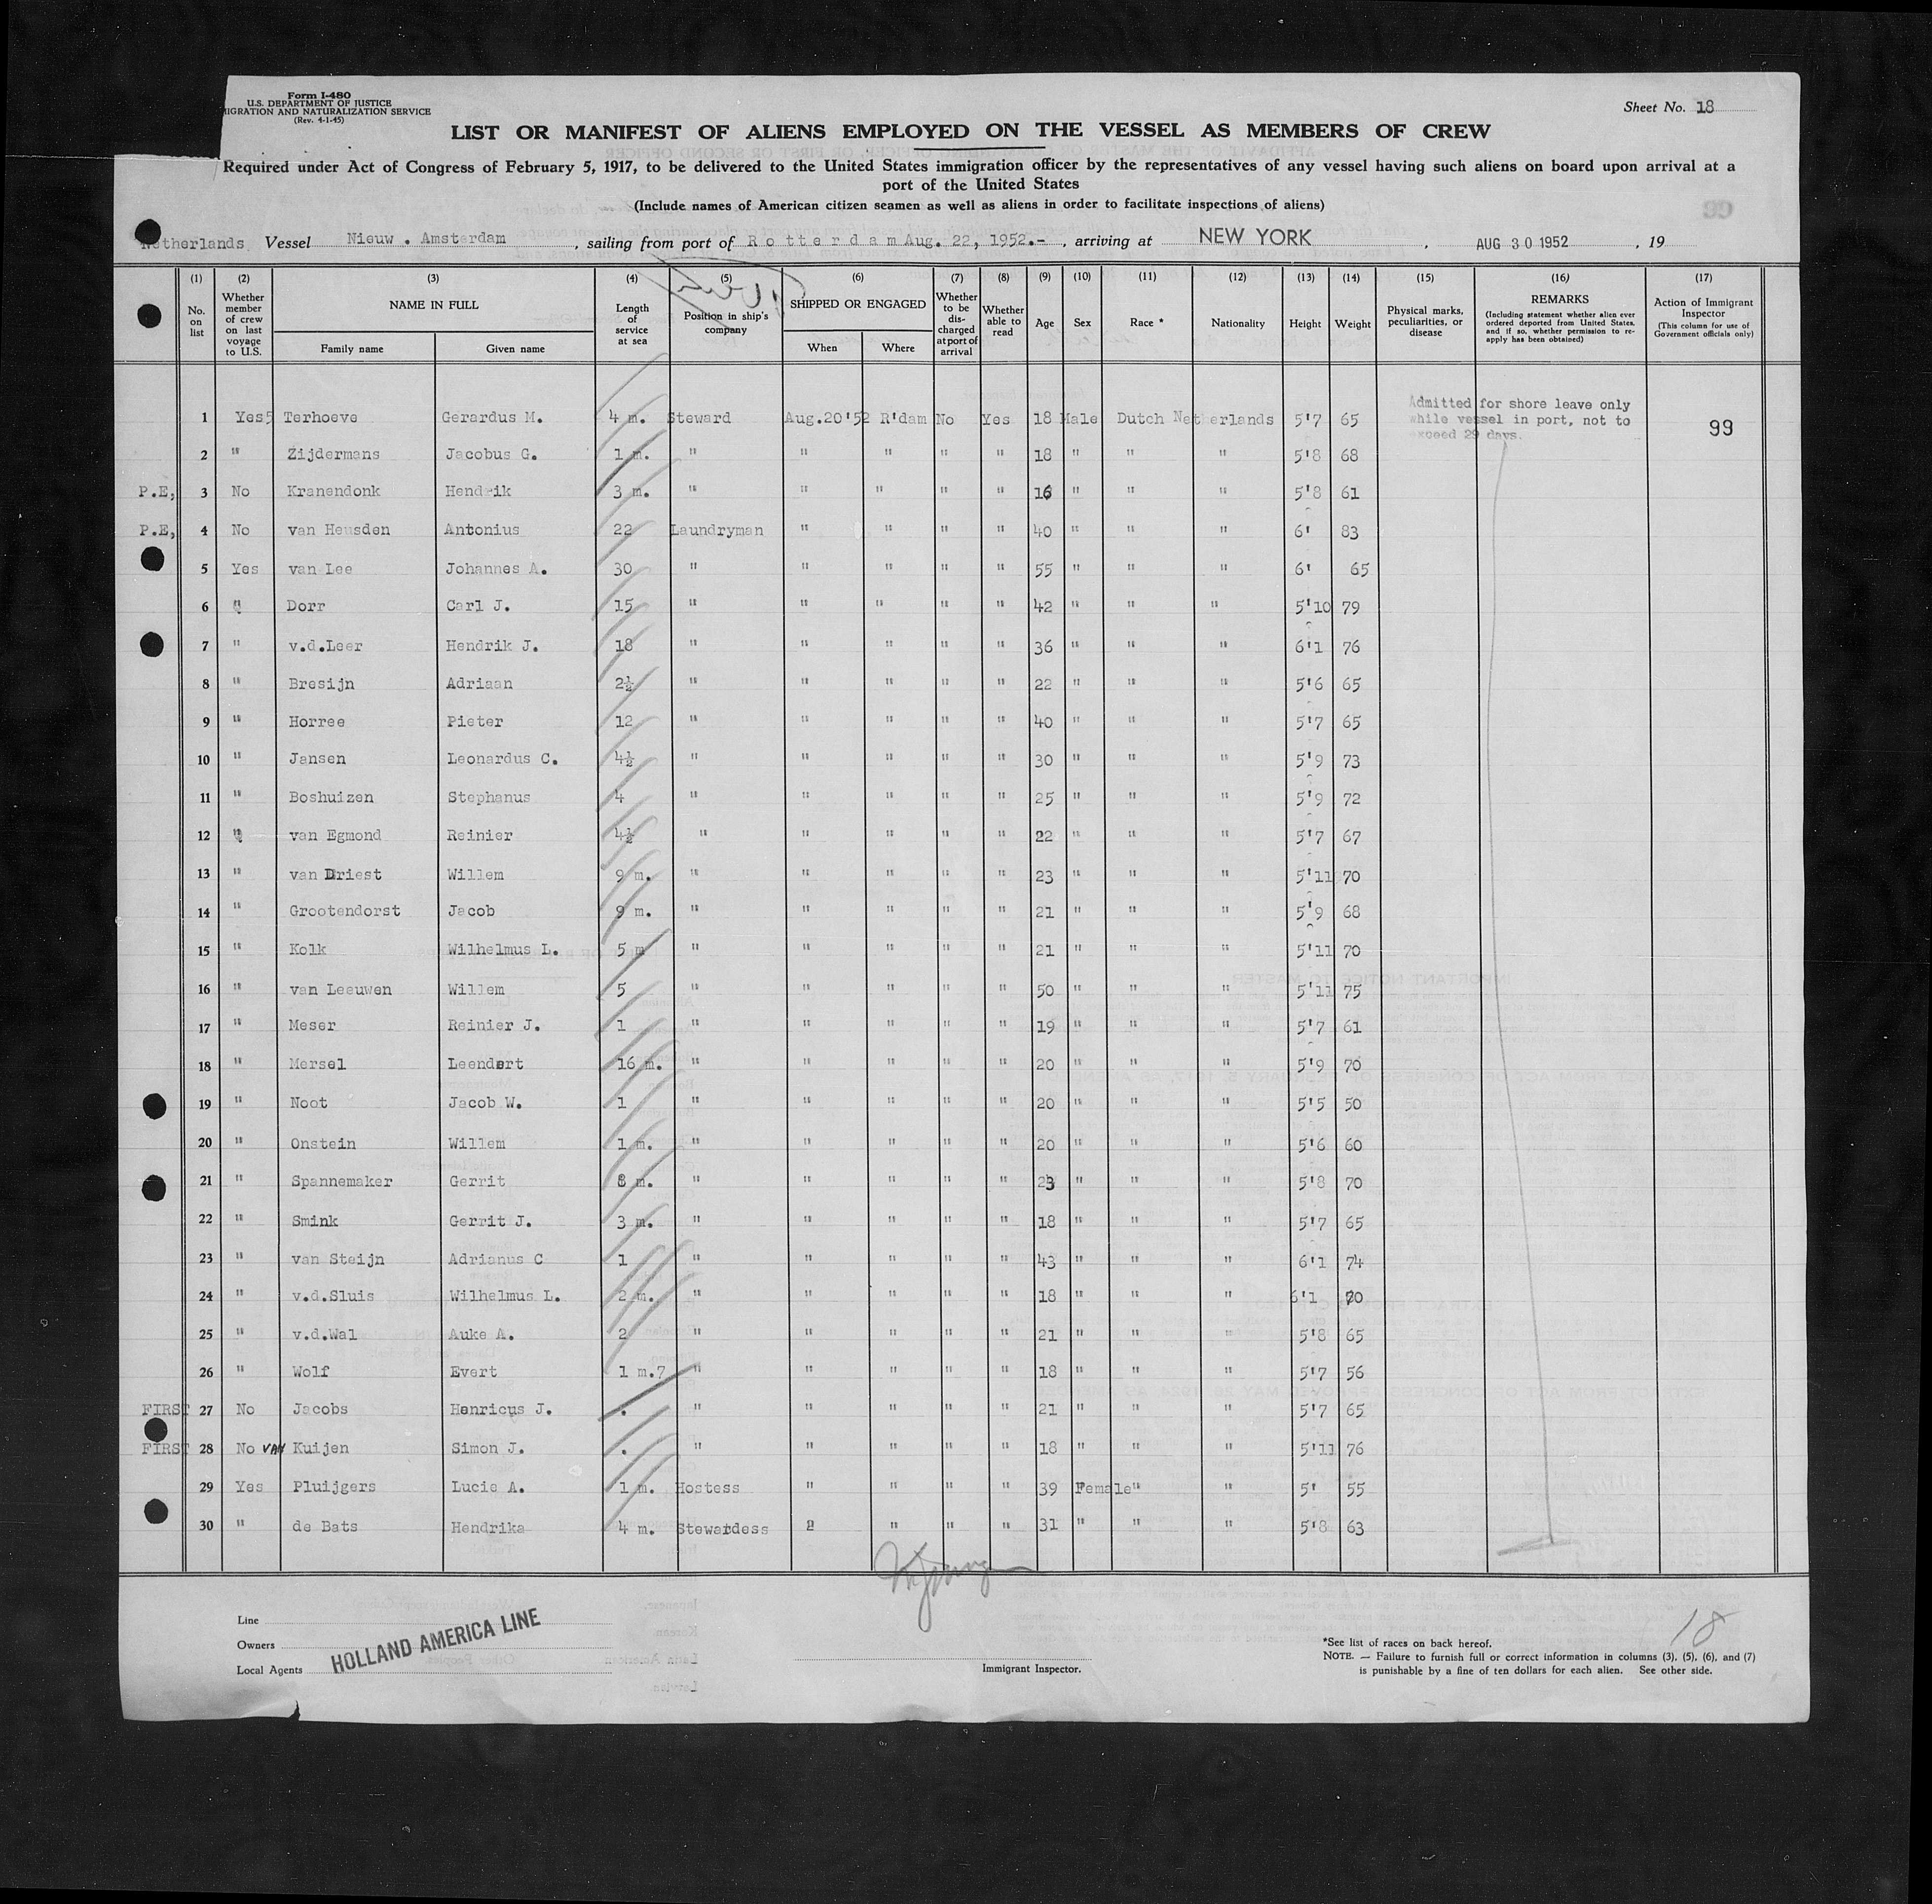 Form I-480
U.S. DEPARTMENT OF JUSTICE
IGRATION AND NATURALIZATION SERVICE
(Rev. 4-1-45)
Sheet No. 18
LIST OR MANIFEST OF ALIENS EMPLOYED ON THE VESSEL AS MEMBERS OF CREW
Required under Act of Congress of February 5, 1917, to be delivered to the United States immigration officer by the representatives of any vessel having such aliens on board upon arrival at a
port of the United States
(Include names of American citizen seamen as well as aliens in order to facilitate inspections of aliens)
Netherlands Vessel Nieuw . Amsterdam , sailing from port of Rotterdam Aug. 22, 1952.- , arriving at NEW YORK , AUG 30 1952 , 19
(1) (2) (3) (4) (5) (6) (7) (8) (9) (10) (11) (12) (13) (14) (15) (16) (17)
No. on list
Whether member of crew on last voyage to U.S.
NAME IN FULL
Family name Given name
Length of service at sea
Position in ship's company
SHIPPED OR ENGAGED
When Where
Whether to be discharged at port of arrival
Whether able to read
Age Sex Race * Nationality Height Weight
Physical marks, peculiarities, or disease
REMARKS
(Including statement whether alien ever ordered deported from United States, and if so, whether permission to re-apply has been obtained)
Action of Immigrant Inspector
(This column for use of Government officials only)
Admitted for shore leave only
while vessel in port, not to
exceed 29 days.
1 Yes5 Terhoeve Gerardus M. 4 m. Steward Aug.20'52 R'dam No Yes 18 Male Dutch Netherlands 5'7 65 99
2 " Zijdermans Jacobus G. 1 m. " " " " " 18 " " " 5'8 68
P.E, 3 No Kranendonk Hendrik 3 m. " " " " " 16 " " " 5'8 61
P.E, 4 No van Heusden Antonius 22 Laundryman " " " " 40 " " " 6' 83
5 Yes van Lee Johannes A. 30 " " " " " 55 " " " 6' 65
6 " Dorr Carl J. 15 " " " " " 42 " " " 5'10 79
7 " v.d.Leer Hendrik J. 18 " " " " " 36 " " " 6'1 76
8 " Bresijn Adriaan 2½ " " " " " 22 " " " 5'6 65
9 " Horree Pieter 12 " " " " " 40 " " " 5'7 65
10 " Jansen Leonardus C. 4½ " " " " " 30 " " " 5'9 73
11 " Boshuizen Stephanus 4 " " " " " 25 " " " 5'9 72
12 " van Egmond Reinier 4½ " " " " " 22 " " " 5'7 67
13 " van Driest Willem 9 m. " " " " " 23 " " " 5'11 70
14 " Grootendorst Jacob 9 m. " " " " " 21 " " " 5'9 68
15 " Kolk Wilhelmus L. 5 m " " " " " 21 " " " 5'11 70
16 " van Leeuwen Willem 5 " " " " " 50 " " " 5'11 75
17 " Meser Reinier J. 1 " " " " " 19 " " " 5'7 61
18 " Mersel Leendert 16 m. " " " " " 20 " " " 5'9 70
19 " Noot Jacob W. 1 " " " " " 20 " " " 5'5 50
20 " Onstein Willem 1 m. " " " " " 20 " " " 5'6 60
21 " Spannemaker Gerrit 8 m. " " " " " 23 " " " 5'8 70
22 " Smink Gerrit J. 3 m. " " " " " 18 " " " 5'7 65
23 " van Steijn Adrianus C 1 " " " " " 43 " " " 6'1 74
24 " v.d.Sluis Wilhelmus L. 2 m. " " " " " 18 " " " 6'1 70
25 " v.d.Wal Auke A. 2 " " " " " 21 " " " 5'8 65
26 " Wolf Evert 1 m.7 " " " " " 18 " " " 5'7 56
FIRST 27 No Jacobs Henricus J. . " " " " " 21 " " " 5'7 65
FIRST 28 No VAN Kuijen Simon J. . " " " " " 18 " " " 5'11 76
29 Yes Pluijgers Lucie A. 1 m. Hostess " " " " 39 Female " " 5' 55
30 " de Bats Hendrika 4 m. Stewardess " " " " 31 " " " 5'8 63
Line
Owners
Local Agents
HOLLAND AMERICA LINE
Immigrant Inspector.
18
*See list of races on back hereof.
NOTE. — Failure to furnish full or correct information in columns (3), (5), (6), and (7)
is punishable by a fine of ten dollars for each alien. See other side.